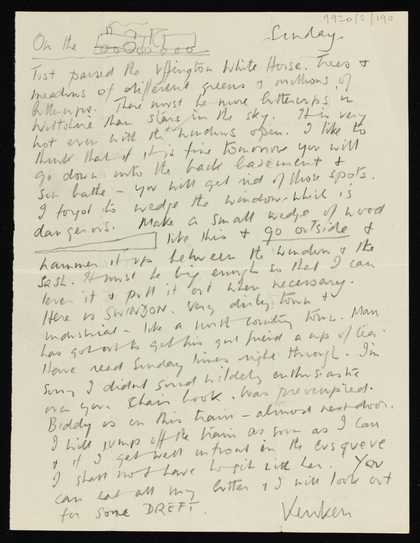 9920/2/190
On the
Sunday.
Just passed the Uffington White Horse. Trees &
meadows of different greens & millions of
buttercups. There must be more buttercups in
Wiltshire than stars in the sky. It is very
hot even with the windows open. I like to
think that if it is fine tomorrow you will
go down into the back basement &
sun bathe - you will get rid of those spots.
I forgot to wedge the window which is
dangerous. Make a small wedge of wood
like this & go outside &
hammer it up between the window & the
sash. It must be big enough so that I can
lever it & pull it out when necessary.
Here is SWINDON. Very dirty town &
industrial - like a north country town. Man
has got out to get his girl friend a cup of tea.
Have read Sunday Times right through. I'm
sorry I didnt sound wildely enthusiastic
over your Chair book. Was preoccupied.
Biddy is on this train - almost next door.
I will jump off the train as soon as I can
& if I get well in front in the bus queue
I shall not have to sit with her. You
can eat all my butter & I will look out
for some DREFT.